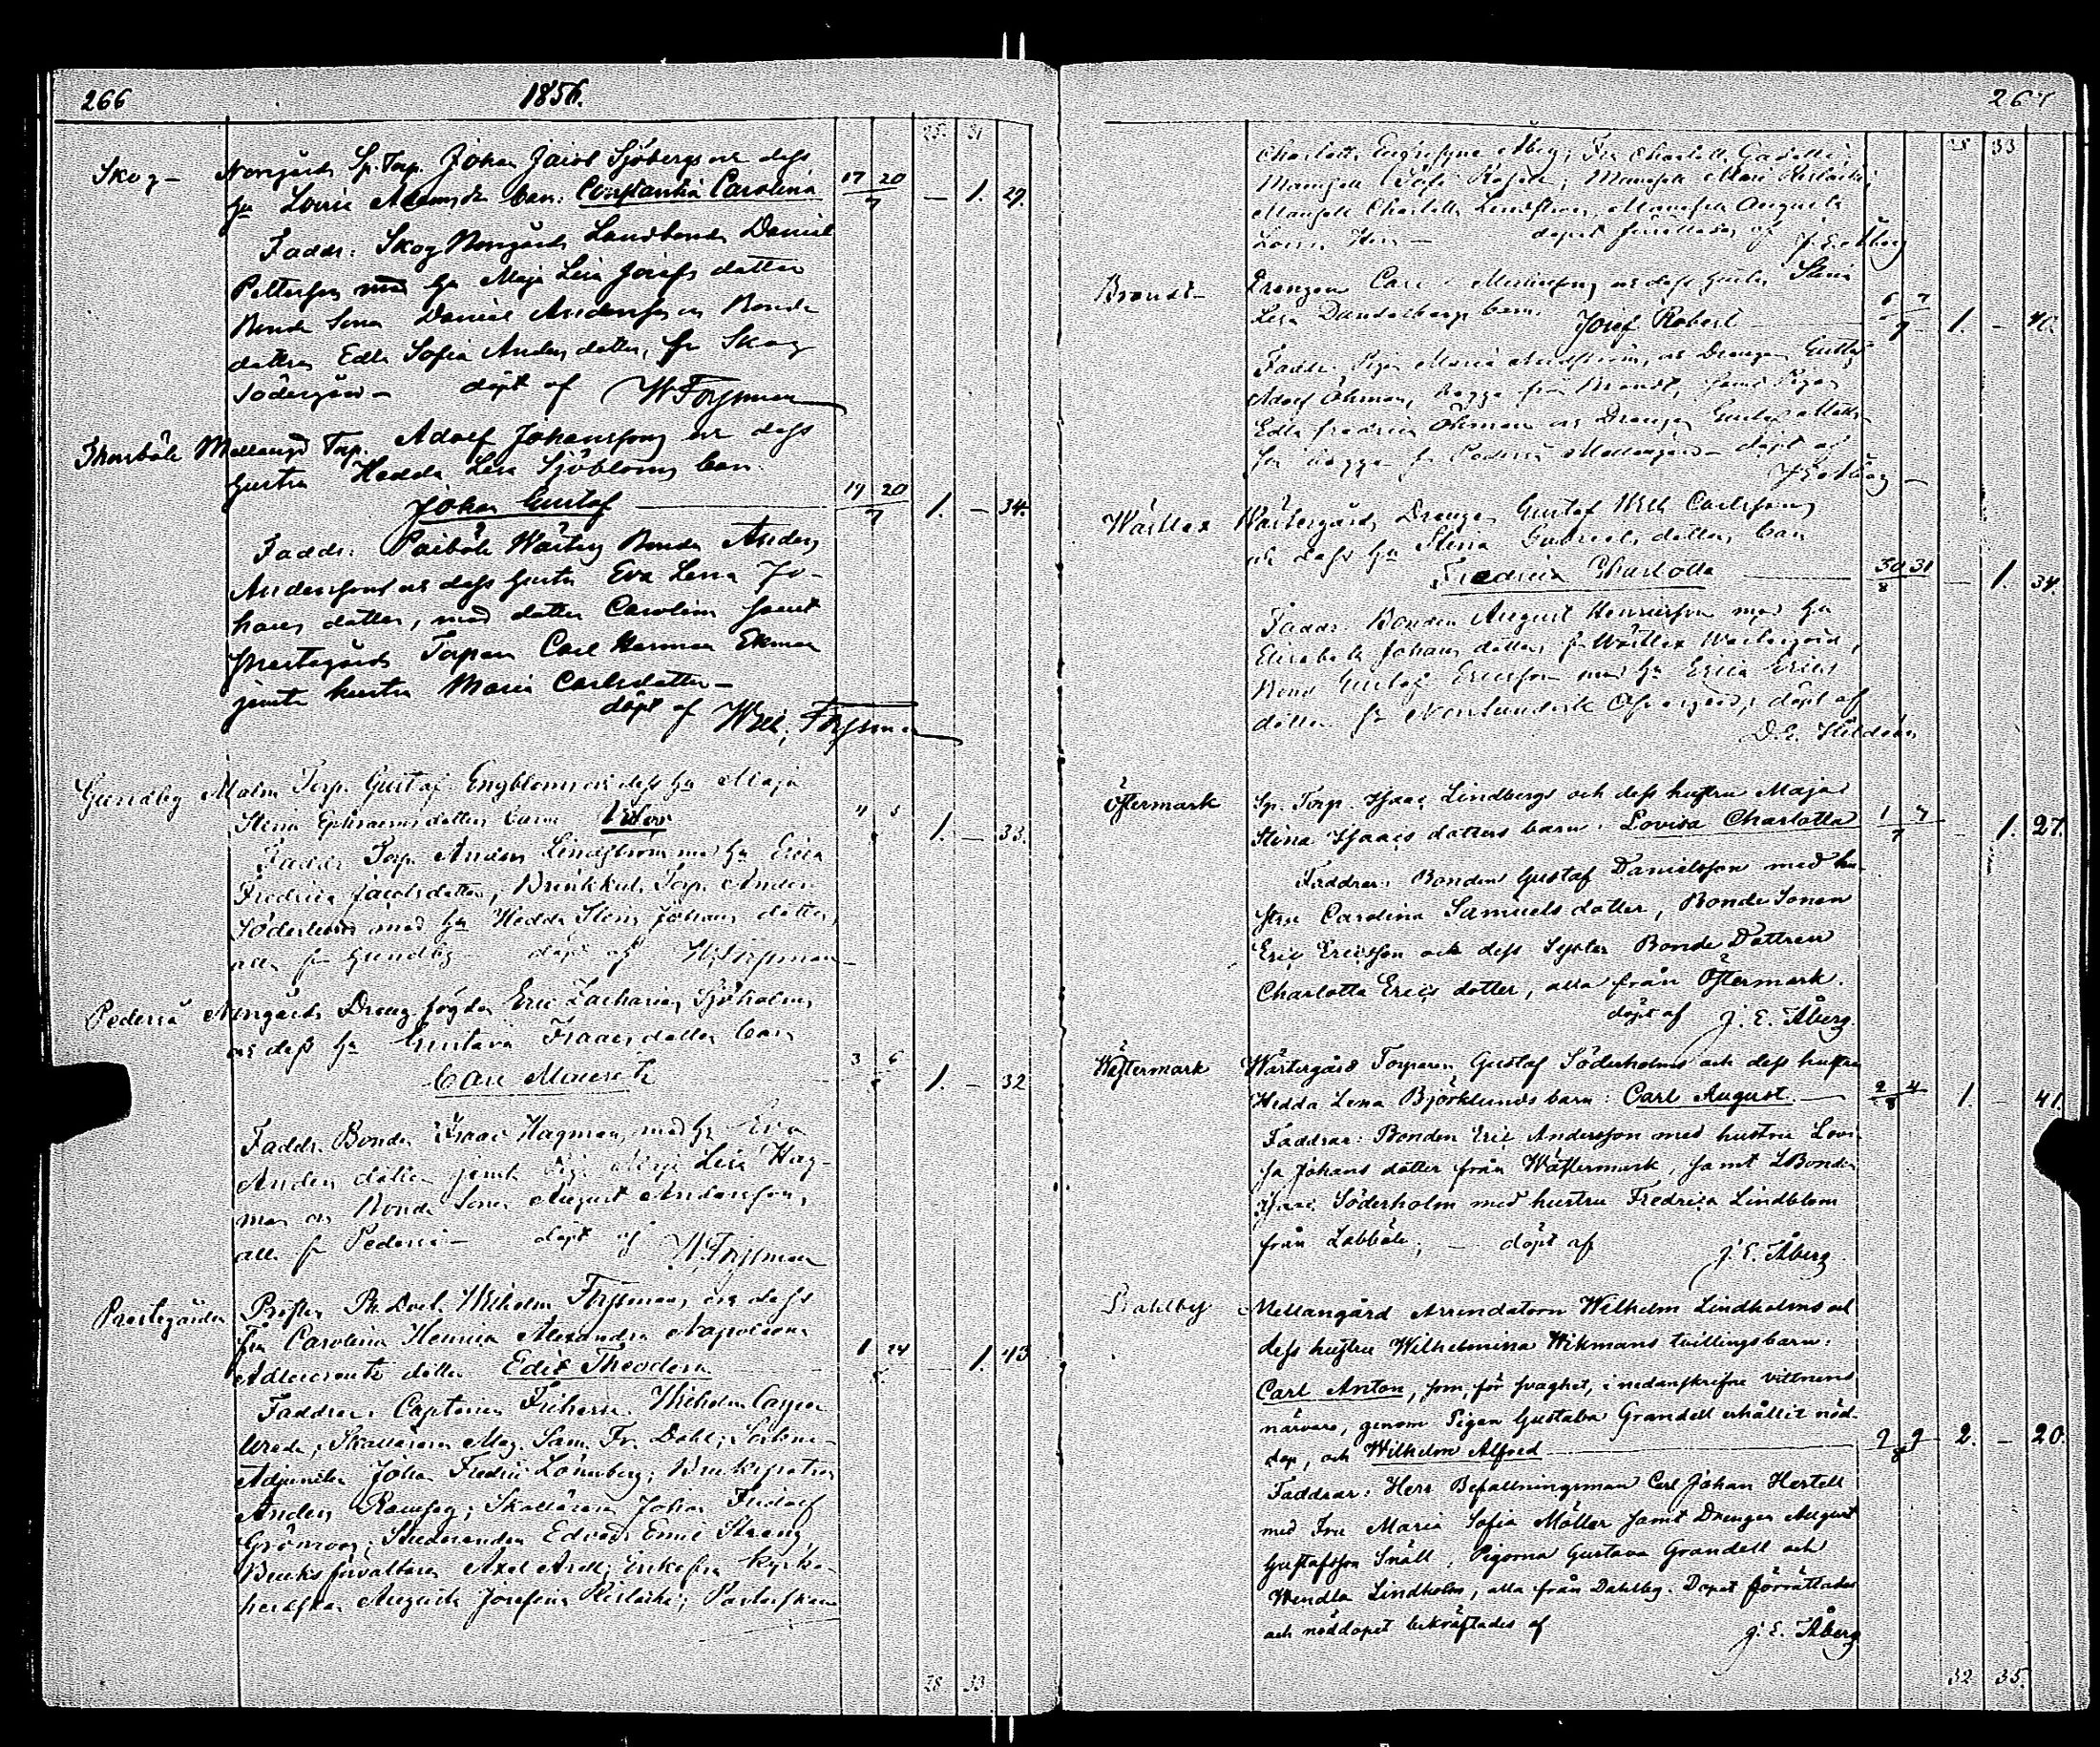 266
1856.
25. 31
Skog – Norrgårds Sp. Torp. Johan Jacob Sjöbergs och dess
hu Lovisa barn: Constantia Carolina 17 20 7 – 1. 29.
Faddr: Skog Norrgårds Landbonde Daniel
Pettersson med hu Maja Lisa Josefs dotter
Bonde Sonen Daniel Andersson och Bonde
dottren Edla Sofia Anders dotter, fr Skog
Södergård – döpt af W. Forssman
Mellangd Torp. Adolf Johanssons och dess
hustru Hedda Lisa Sjöbloms barn
Johan Gustaf 19 20 7 1. – 34.
Faddr: Paiböle Wästerg Bonden Anders
Andersson och dess hustru Eva Lena Jo-
hans dotter, med dotter Carolina samt
Prestegårds Torparen Carl Herman Ekman
jemte hustru Maria Carlsdotter –
döpt af Wilh. Forssman
Gundby Malm Torp. Gustaf Engbloms och dess hu Maja
Stina Ephraims dotters barn Viktor 4 5 1. – 33.
Faddr Torp. Anders Lindström med hu Erica
Fredrica Jacobsdotter, Torp. Anders
Söderlund med hu Hedda Stina Johans dotter,
alla fr Gundby döpt af W. Forssman
Pederså Norrgårds Dreng fogden Eric Zacharias Sjöholms
och dess hu Gustava Isaacs dotters barn
Carl Mauritz 3 6 1. – 32
Faddr. Bonden Isaac Hagman, med hu Eva
Anders dotter jemte Pigan Maja Lisa Hag-
man och Bonde Sonen August Andersson,
alla fr Pederså – döpt af W. Forssman
Prestegården Presten Ph. Doct. Wilhelm Forssmans och dess
fru Carolina Henrica Alexandra Napoleona
Adlercreutz dotter Edit Theodora 1 24 – 1. 43
Faddrar: Captenen Friherre Wilhelm Casper
Wrede; Skolläraren Mag. Sam. Fr. Dahl; Sockne-
Adjuncten Johan Fredric Lönnberg; Brukspatron
Anders Ramsay; Skolläraren Johan Fridolf
Grönroos; Studeranden Edvard Emil Strang
Bruks förvaltaren Axel; Enkefru Kyrko-
herdskan Augusta Josefina; Pastorskan
28 33
267
28 33
Charlotta Åberg; Fru Charlotta Gadelli;
Mamsell Sofi; Mamsell Mari;
Mamsell Charlotta Lindström, Mamsell Augusta
Lovisa – dopet förrättades af J. E. Åberg
Brandt – Drengen Carl och dess hustru Stina
Lisa barn. Josef Robert 6 7 7 1. – 40.
Faddr. Pigan Maria, och Drengen Gustaf
Adolf Öhman, begge från Brandt, samt Pigan
Edla Fredrica Öhman och Drengen Gustaf
begge fr Pederså Mellangård – döpt af
J. E. Åberg –
Wästlax Wästergårds Drengen Gustaf Wilh Carlssons
och dess hu Stina Gabriels dotters barn
Fredrica Charlotta 30 31 8 – 1. 34.
Faddr: Bonden August Henriksson med hu
Elisabeth Johans dotter fr Wästlax Wästergård,
Bond Gustaf Ericsson med hu Erica Erics
dotter fr döpt af
D. E. Hildén
Östermark Sp. Torp. Isaac Lindbergs och dess hustru Maja
Stina Isaacs dotters barn: Lovisa Charlotta 1 7 7 – 1. 27.
Faddrar: Bonden Gustaf Danielsson med hu-
stru Carolina Samuels dotter, Bonde Sonen
Eric Ericsson och dess Syster Bonde Dottren
Charlotta Erics dotter, alla från Östermark.
döpt af J. E. Åberg.
Wästermark Wästergård Torparen Gustaf Söderholms och dess hustru
Hedda Lena Björklunds barn: Carl August. 2 4 8 1. – 41.
Faddrar: Bonden Eric Andersson med hustru Lovi-
sa Johans dotter från Wästermark, samt LBonden
Isaac Söderholm med hustru Fredrica Lindblom
från Labböle; – döpt af J. E. Åberg.
Dahlby Mellangård Arrendatorn Wilhelm Lindholms och
dess hustru Wilhelmina Wikmans tvillingsbarn:
Carl Anton, som, för svaghet, i nedanskrifne vittnens
närvaro, genom Pigan Gustava Grandell erhållit nöd-
dop, och Wilhelm Alfred 9 9 8 2. – 20.
Faddrar: Herr Befallningsman Carl Johan Hertell
med Fru Maria Sofia Möller samt Drengen August
Gustafsson Snäll, Pigorna Gustava Grandell och
Wendla Lindholm, alla från Dahlby. Dopet förrättades
och nöddopet bekräftades af J. E. Åberg
32 35.